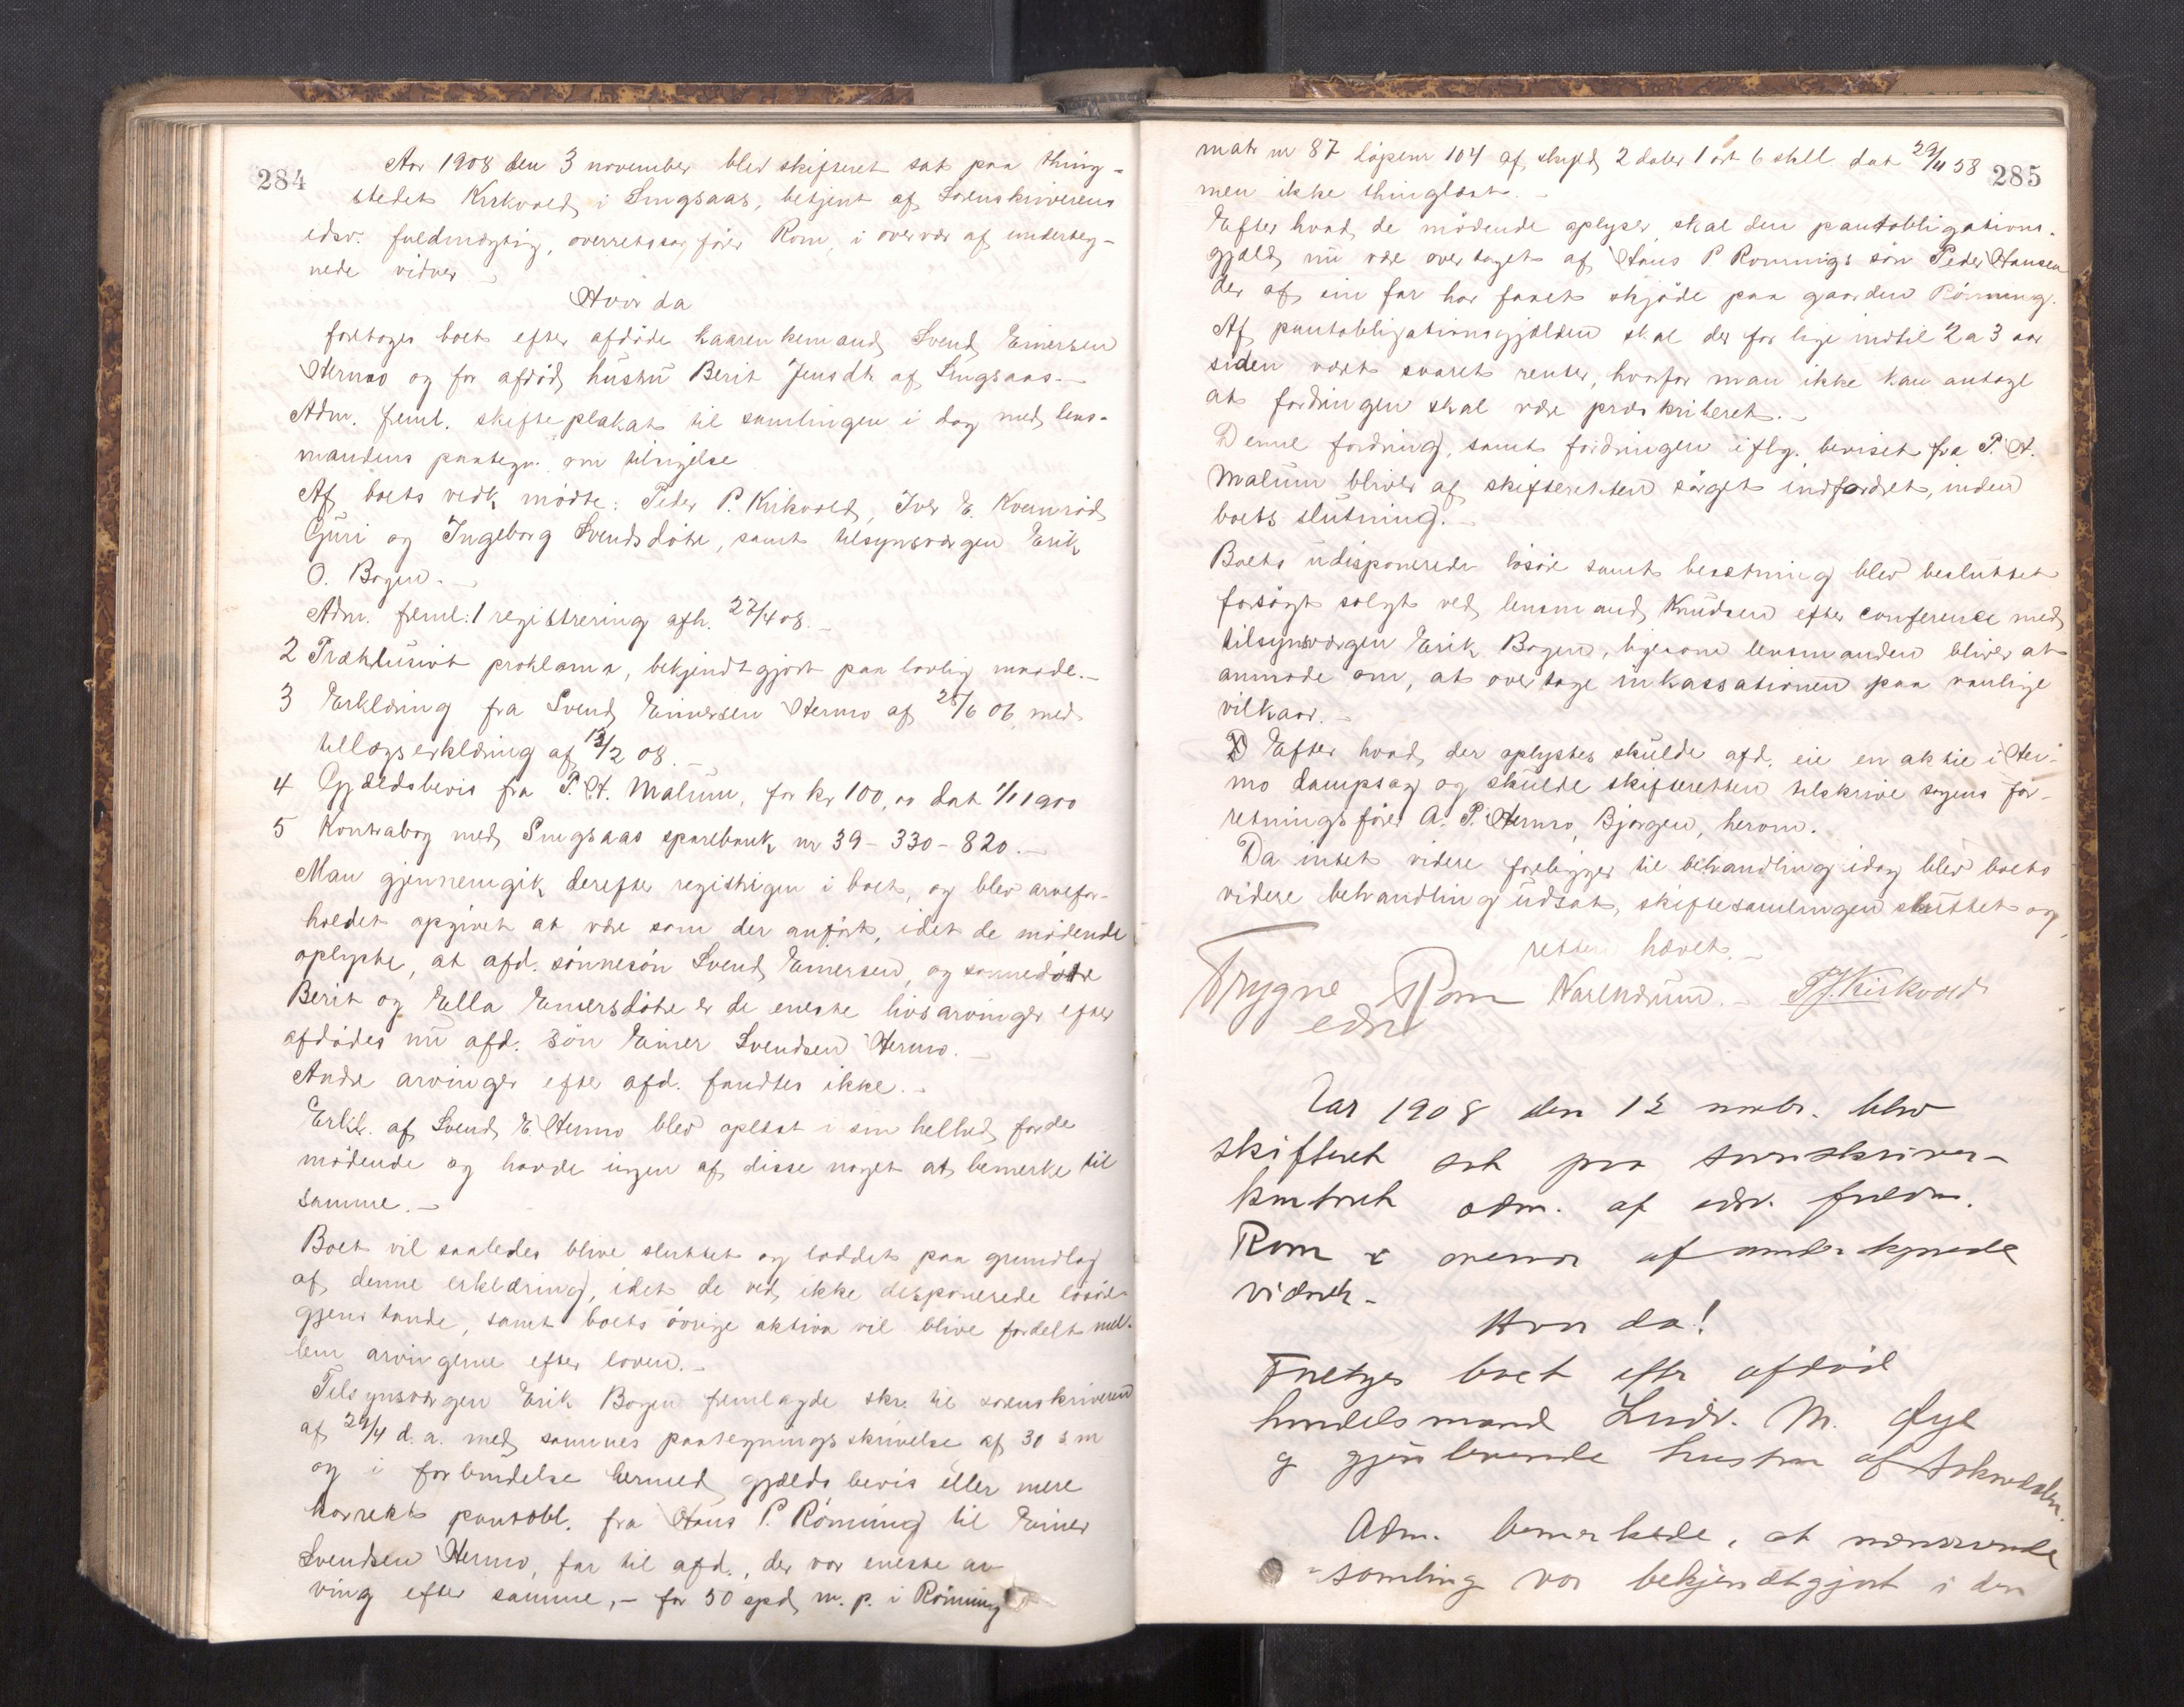 284
Aar 1908 den 3 november blev skifteret sat paa thing-
stedet Kirkvold i Singsaas, betjent af Sorenskriverens
edsv. fuldmægtig, overretssagfører Rom, i overvær af underteg-
nede vidner
Hvor da
foretoges boet efter afdøde kaarenkemand Svend Einersen
Hermo og før afdød hustru Berit Jensdt. af Singsaas.-
Adm. freml. skifteplakat til samlingen i dag med lens-
mandens paategn. om tilsigelse
Af boets vedk. mødte: Peder P. Kirkvold, Iver E. Kvernrød
Guri og Ingeborg Svendsdøtre, samt tilsynsværgen Erik
O. Bogen.-
Adm. freml: 1 registrering afh. 27/4 08.-
2 Præklusivt proklama, bekjendtgjort paa lovlig maade.-
3 Erklæring fra Svend Einersen Hermo af 25/6 06 med
tillægserklæring af 13/2 08.-
4 Gjældsbevis fra P. H. Malum, for kr 100,00 dat 1/1 1900
5 Kontrabog med Singsaas sparebank nr 39-330-820.-
Man gjennemgik derefter registrigen i boet, og blev arvefor-
holdet opgivet at være som der anført, idet de mødende
oplyste, at afd. sønnesøn Svend Einersen, og sønnedøtre
Berit og Ella Einersdøtre er de eneste livsarvinger efter
afdødes nu afd. søn Einer Svendsen Hermo.-
Andre arvinger efter afd. fandtes ikke.-
Erkl. af Svend E. Hermo blev oplæst i sin helhed for de
mødende og havde ingen af disse noget at bemerke til
samme.-
Boet vil saaledes blive sluttet og loddet paa grundlag
af denne erklæring, idet de ved ikke disponerede løsøre
gjenstande, samt boets øvrige aktiva vil blive fordelt mel-
lem arvingerne efter loven.-
Tilsynsværgen Erik Bogen fremlagde skr. til sorenskriveren
af 29/4 d.a. med sammes paategningsskrivelse af 30 s m
og i forbindelse hermed gjældsbevis eller mere
korrekt pantobl. fra Hans P. Rønning til Einer
Svendsen Hermo, far til afd., der var eneste ar-
ving efter samme,- for 50 spd m. p. i Rønning
285
matr nr 87 løpenr 104 af skyld 2 daler 1 ort 6 skill dat 29/11 58
men ikke thinglæst.-
Efter hvad de mødende oplyser skal den pantobligations-
gjæld nu være overtaget af Hans P. Rønnings søn Peder Hansen
der af sin far har faaet skjøde paa gaarden Rønning.
Af pantobligationsgjælden skal der for lige indtil 2 a 3 aar
siden været svaret renter, hvorfor man ikke kan antage
at fordringen skal være præskriberet.-
Denne fordring, samt fordringen iflg. beviset fra P. H.
Malum bliver af skifteretten sørget indfordret, inden
boets slutning.-
Boets udisponerede løsøre samt besætning blev besluttet
forsøgt solgt ved lensmand Knudsen efter conference med
tilsynsværgen Erik Bogen, ligesom lensmanden bliver at
anmode om, at overtage inkassationen paa vanlige
vilkaar.-
Efter hvad der oplystes skulde afd. eie en aktie i Her-
mo dampsag og skulde skifteretten tilskrive sagens for-
retningsfører A. P. Hermo, Bjørgen, herom.
Da intet videre foreligger til behandling idag blev boets
videre behandling udsat, skiftesamlingen sluttet og
retten hævet.-
Trygve Rom Narendrum.- P.J. Kirkvold
edsv
Aar 1908 den 12 novbr. blev
skifteret sat paa sorenskriver-
kontoret adm. af edsv. fuldm.
Rom i overvær af undertegnede
vidner.-
Hvor da!
Foretoges boet efter afdød
handelsmand Ludv. M. Øye
og gjenlevende hustru af
Adm. bemerkede, at nærværende
samling var bekjendtgjort i den